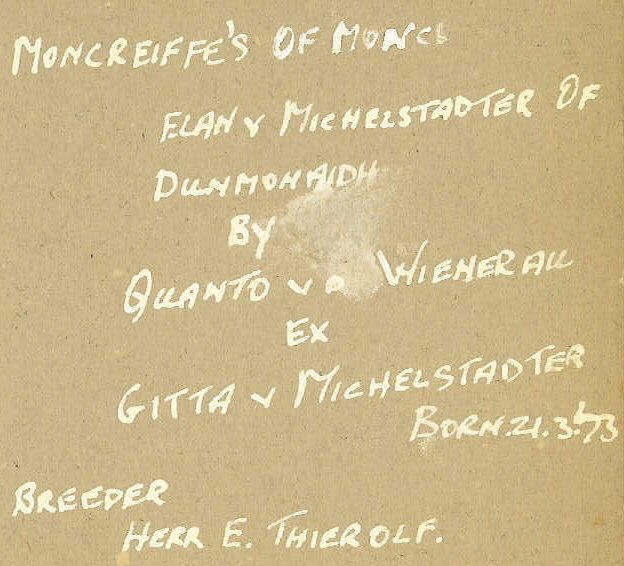 MONCREIFFE'S OF MONC
ELAN V MICHELSTADTER OF
DUNMONAIDH
BY
QUANTO V D WIENERAU
EX
GITTA V MICHELSTADTER
BORN. 21. 3. '73
BREEDER
HERR E. THIEROLF.